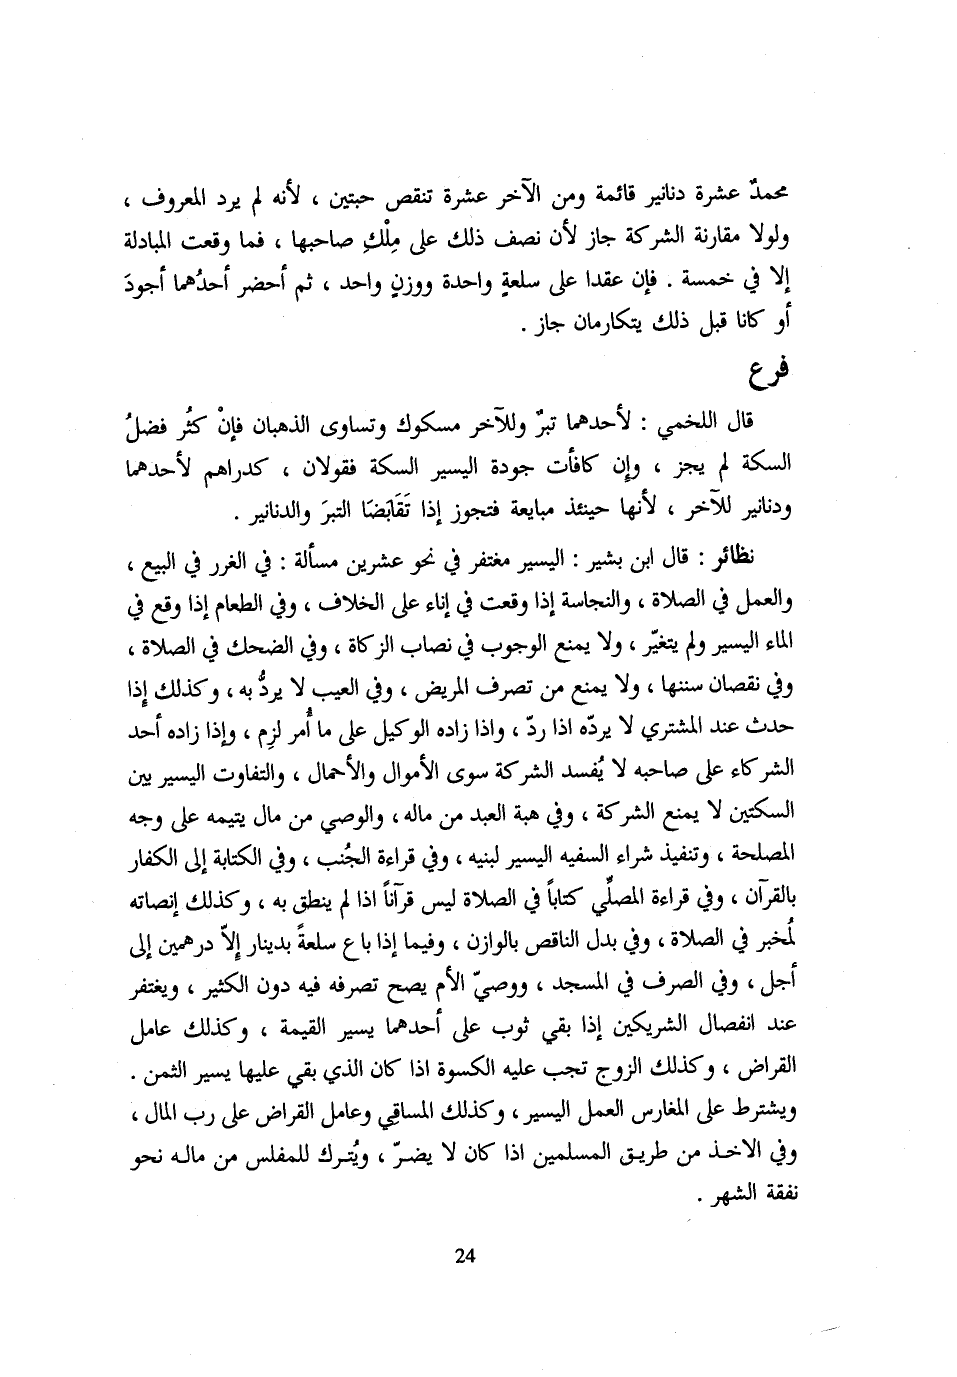 محمدٌ عشرة دنانير قائمة ومن الآخر عشرة تنقص حبتين ، لأنه لم يرد المعروف ،
ولولا مقارنة الشركة جاز لأن نصف ذلك على مِلْكِ صاحبها ، فما وقعت المبادلة
إلا في خمسة . فإن عقدا على سلعةٍ واحدة ووزنٍ واحد ، ثم أحضر أحدُهما أجودَ
أو كانا قبل ذلك يتكارمان جاز .
فرع
قال اللخمي : لأحدهما تبرٌ وللآخر مسكوك وتساوى الذهبان فإنْ كثُر فضلُ
السكة لم يجز ، وإن كافأت جودة اليسير السكة فقولان ، كدراهم لأحدهما
ودنانير للآخر ، لأنها حينئذ مبايعة فتجوز إذا تَقَابَضَا التبرَ والدنانير .
نظائر : قال ابن بشير : اليسير مغتفر في نحو عشرين مسألة : في الغرر في البيع ،
والعمل في الصلاة ، والنجاسة إذا وقعت في إناء على الخلاف ، وفي الطعام إذا وقع في
الماء اليسير ولم يتغيّر ، ولا يمنع الوجوب في نصاب الزكاة ، وفي الضحك في الصلاة ،
وفي نقصان سننها ، ولا يمنع من تصرف المريض ، وفي العيب لا يردُّ به ، وكذلك إِذا
حدث عند المشتري لا يردّه اذا ردّ ، واذا زاده الوكيل على ما أُمر لزِم ، وإذا زاده أحد
الشركاء على صاحبه لا يُفسد الشركة سوى الأموال والأحمال ، والتفاوت اليسير بين
السكتين لا يمنع الشركة ، وفي هبة العبد من ماله ، والوصي من مال يتيمه على وجه
المصلحة ، وتنفيذ شراء السفيه اليسير لبنيه ، وفي قراءة الجُنب ، وفي الكتابة إلى الكفار
بالقرآن ، وفي قراءة المصلِّي كتاباً في الصلاة ليس قرآناً اذا لم ينطق به ، وكذلك إنصاته
لُمخبر في الصلاة ، وفي بدل الناقص بالوازن ، وفيما إذا باع سلعةً بدينار إلاّ درهمين إلى
أجل ، وفي الصرف في المسجد ، ووصيّ الأم يصح تصرفه فيه دون الكثير ، ويغتفر
عند انفصال الشريكين إذا بقي ثوب على أحدهما يسير القيمة ، وكذلك عامل
القراض ، وكذلك الزوج تجب عليه الكسوة اذا كان الذي بقي عليها يسير الثمن .
ويشترط على المغارس العمل اليسير ، وكذلك المساقِي وعامل القراض على رب المال ،
وفي الاخذ من طريق المسلمين اذا كان لا يضرّ ، ويُترك للمفلس من ماله نحو
نفقة الشهر .
24